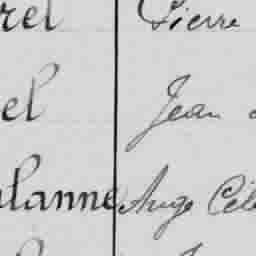 rel Pierre
el Jean
lanne Ange Cél